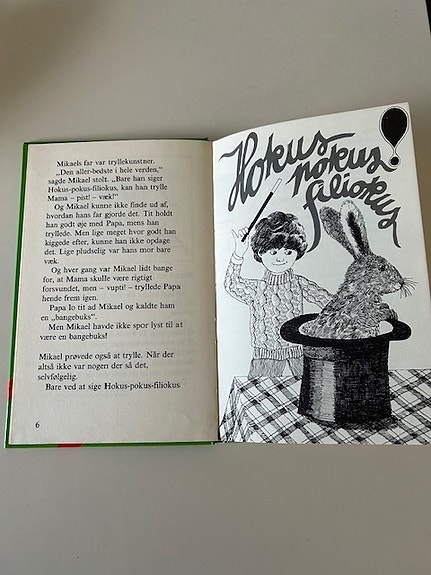 Mikaels far var tryllekunstner.
„Den aller-bedste i hele verden,"
sagde Mikael stolt. „Bare han siger
Hokus-pokus-filiokus, kan han trylle
Mama – pist! – væk!"
Og Mikael kunne ikke finde ud af,
hvordan hans far gjorde det. Tit holdt
han godt øje med Papa, mens han
tryllede. Men lige meget hvor godt han
kiggede efter, kunne han ikke opdage
det. Lige pludselig var hans mor bare
væk.
Og hver gang var Mikael lidt bange
for, at Mama skulle være rigtigt
forsvundet, men – vupti! – tryllede Papa
hende frem igen.
Papa lo tit ad Mikael og kaldte ham
en „bangebuks".
Men Mikael havde ikke spor lyst til at
være en bangebuks!
Mikael prøvede også at trylle. Når der
altså ikke var nogen der så det,
selvfølgelig.
Bare ved at sige Hokus-pokus-filiokus
6
Hokus
pokus
filiokus!